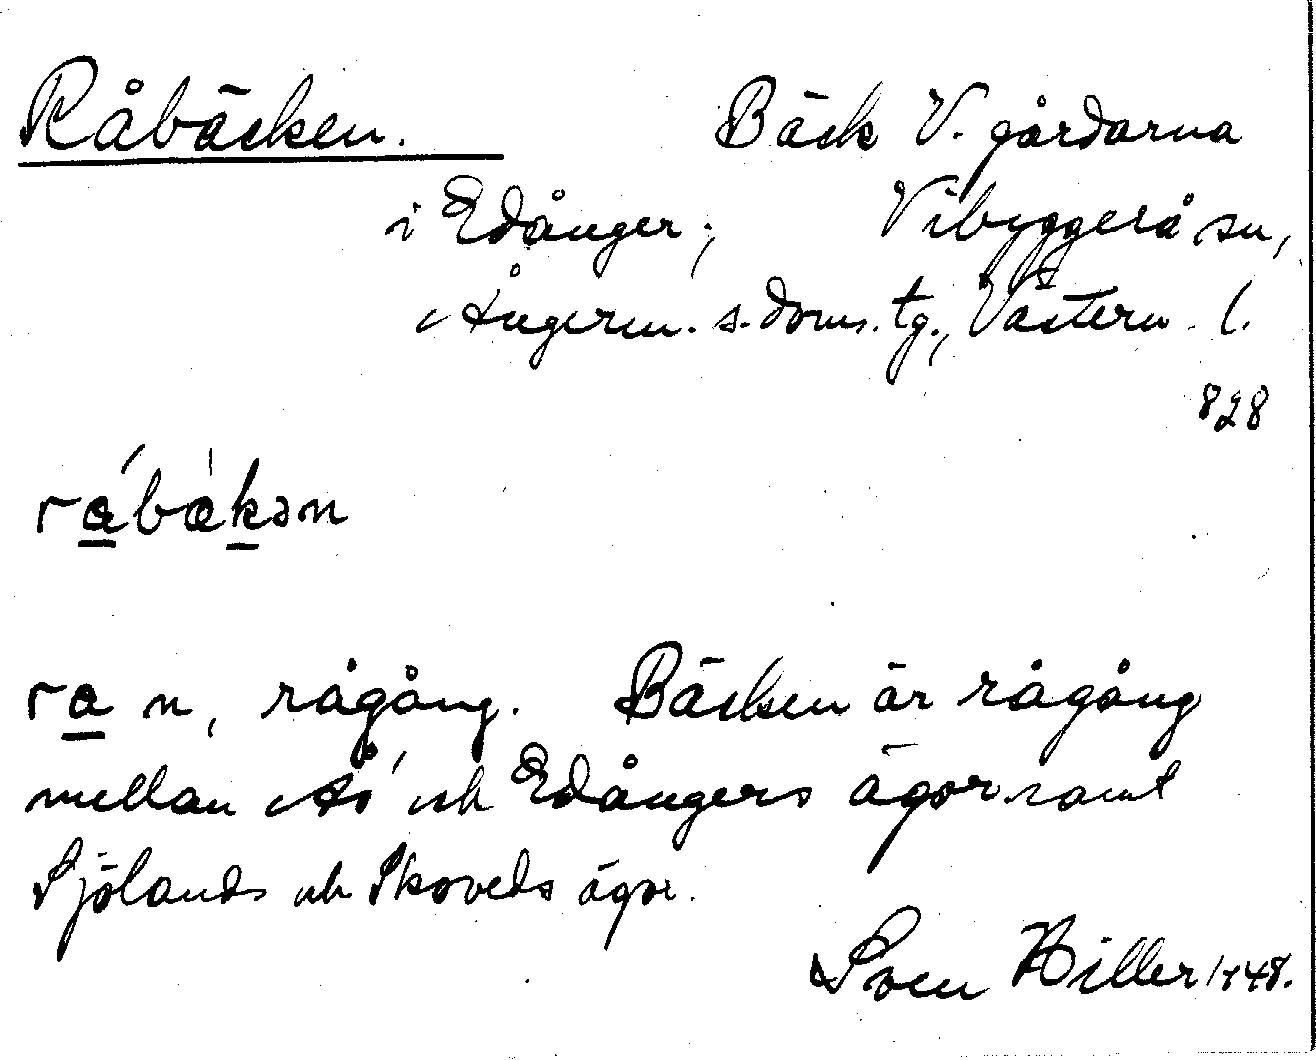 Råbäcken. Bäck V. gårdarna
i Edånger; Vibyggerå sn,
Ångerm. s. doms. tg., Västern. l.
828
rábàkən
ra n, rågång. Bäcken är rågång
mellan Ås' och Edångers ägor samt
Sjölands och Skoveds ägor.
Sven Hiller 1948.